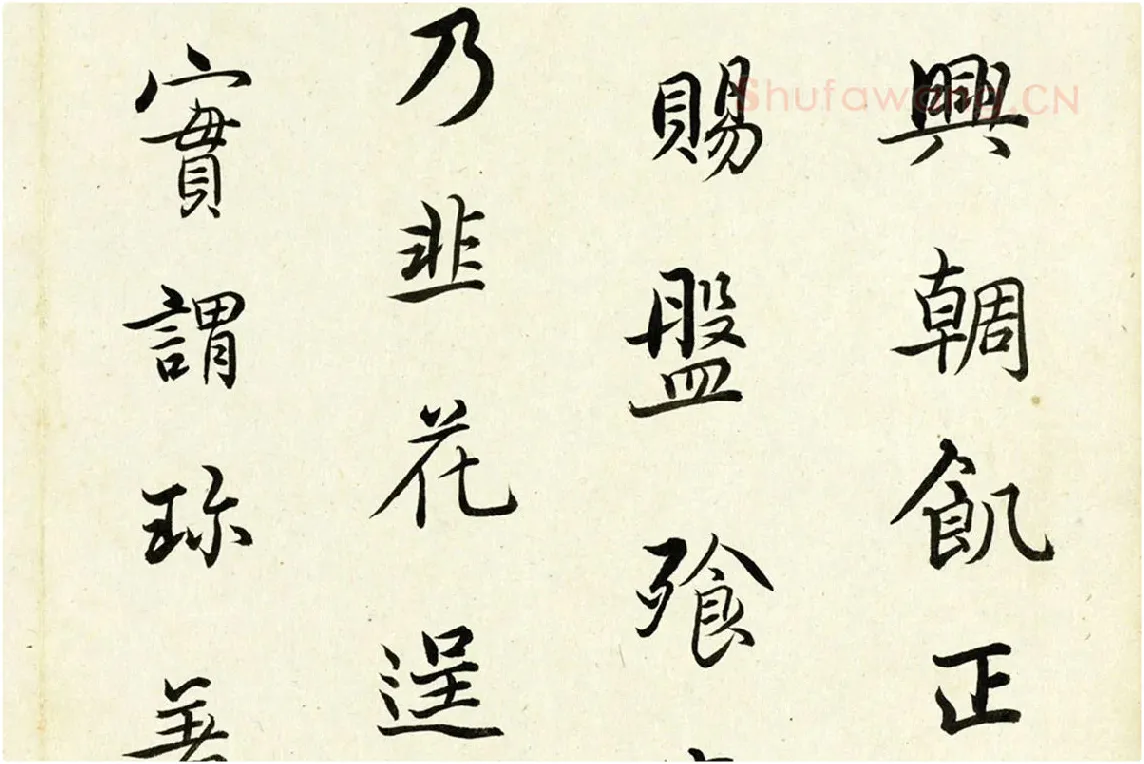 興輖飢正
賜盤飱
乃韭花逞
實謂珎羞
Shufawang.CN